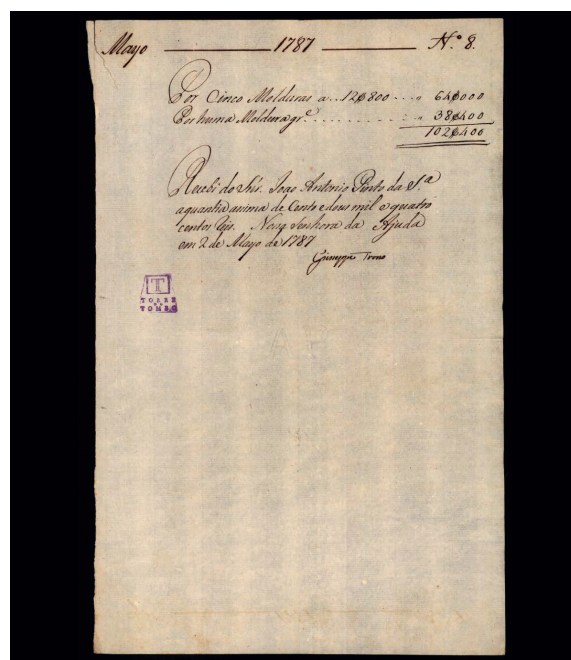 Mayo 1787 N.º 8.
Por Cinco Molduras a .. 12$800 - - - " 64$000
Por huma Moldura gr.e . . . . . . . . . . " 38$400
102$400
Recebi do Snr. Joao Antonio Pinto da S.a
a quantia asima de Cento e dous mil e quatro
centos Reis. Nosa Senhora da Ajuda
em 2 de Mayo de 1787
Giuseppe Trono
T
TORRE
DO
TOMBO